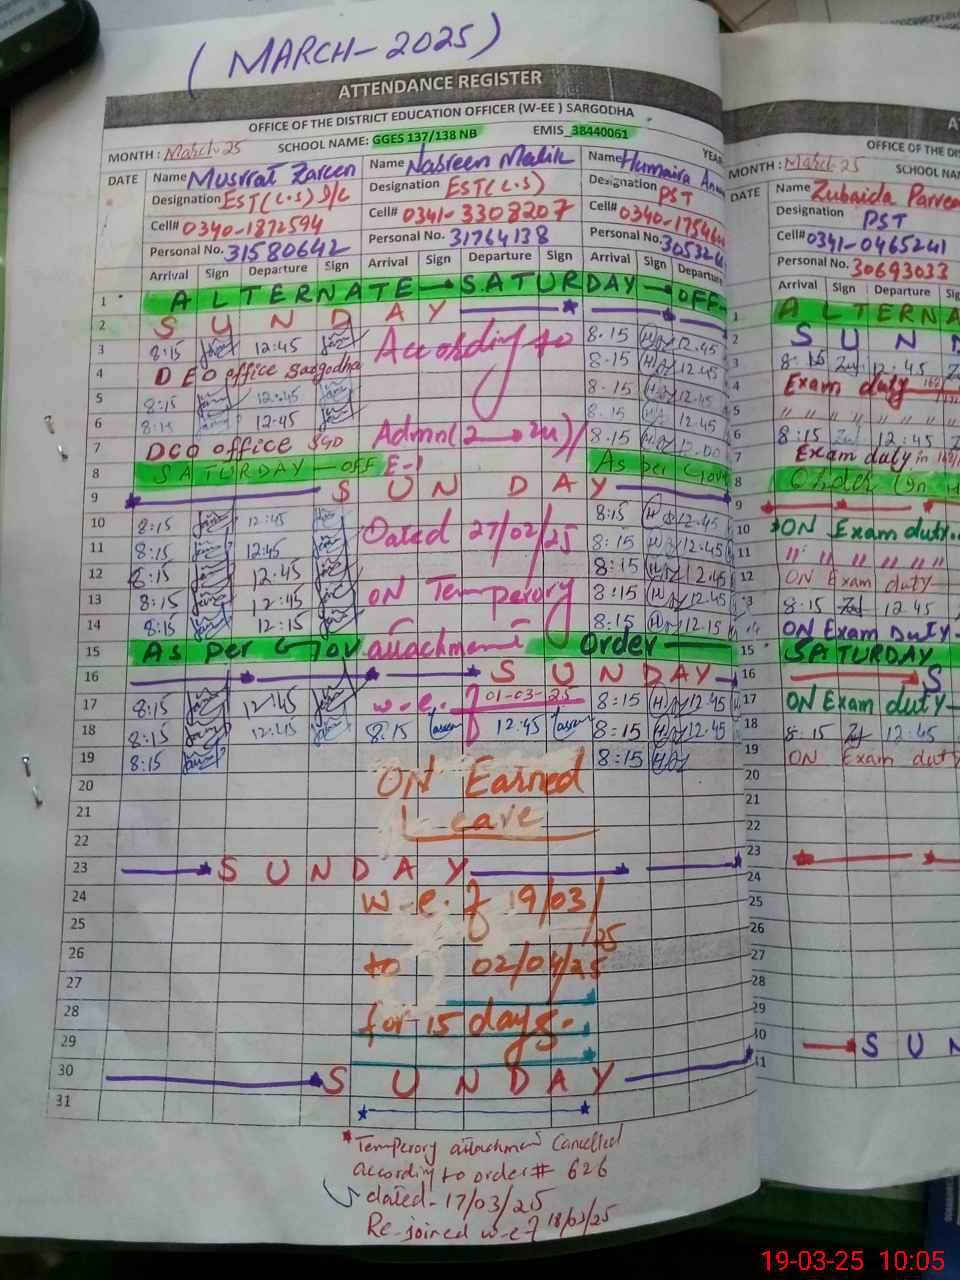 ( MARCH-2025 )
ATTENDANCE REGISTER
OFFICE OF THE DISTRICT EDUCATION OFFICER (W-EE ) SARGODHA
SCHOOL NAME: GGES 137/138 NB EMIS_38440061
MONTH : March-25 YEAR
DATE Name Musrrat Zareen Name Nasreen Malik Name Humaira
Designation EST(C.S) I/C Designation EST(C.S) Designation PST
Cell# 0340-1872594 Cell# 0341-3308207 Cell# 0340-1754
Personal No. 31580642 Personal No. 31764138 Personal No. 305326
Arrival Sign Departure Sign Arrival Sign Departure Sign Arrival Sign Departure
1 ALTERNATE SATURDAY OFF
2 SUNDAY
3 8:15 12:45 According to 8.15 12.45
4 DEO office Sargodha 8.15 12.45
5 8:15 12:45 8.15 12.45
6 8:15 12:45 8.15 12.45
7 DEO office SGD Admn(2 8.15 12.00
8 SATURDAY - OFF E-1 As per Govt
9 SUNDAY
10 8:15 12:45 Dated 27/02/25 8:15 12.45
11 8:15 12:45 8:15 12.45
12 8:15 12:45 8:15 12.45
13 8:15 12:45 ON Temperory 8:15 12.45
14 8:15 12:15 8:15 12.15
15 As Per Gov attachment Order
16 SUNDAY
17 8:15 12:45 w.e.f 01-03-25 8:15 12.45
18 8:15 12:45 8.15 12:45 8:15 12.45
19 8:15 8:15
20 ON Earned
21 Leave
22
23 SUNDAY
24 w.e.f 19/03/
25 /25
26 to 02/04/25
27
28 for 15 days.
29
30 SUNDAY
31
*Temperory attachment Cancelled
according to order# 626
dated-17/03/25
Re-joined w-e-f 18/03/25
OFFICE OF THE DIS
MONTH : March-25 SCHOOL NA
DATE Name Zubaida Parveen
Designation PST
Cell# 0341-0465241
Personal No. 30693033
Arrival Sign Departure
1 ALTERNA
2 SUND
3 8:15 12:45
4 Exam duty
5 " " " " "
6 8:15 12:45
7 Exam duty in
8
9
10 ON Exam duty.
11 " " " " " "
12 ON Exam duty
13 8:15 12 45
14 ON Exam Duty
15 SATURDAY
16 S
17 ON Exam duty
18 8:15 12:45
19 ON Exam duty
20
21
22
23
24
25
26
27
28
29
30 SUN
31
19-03-25 10:05